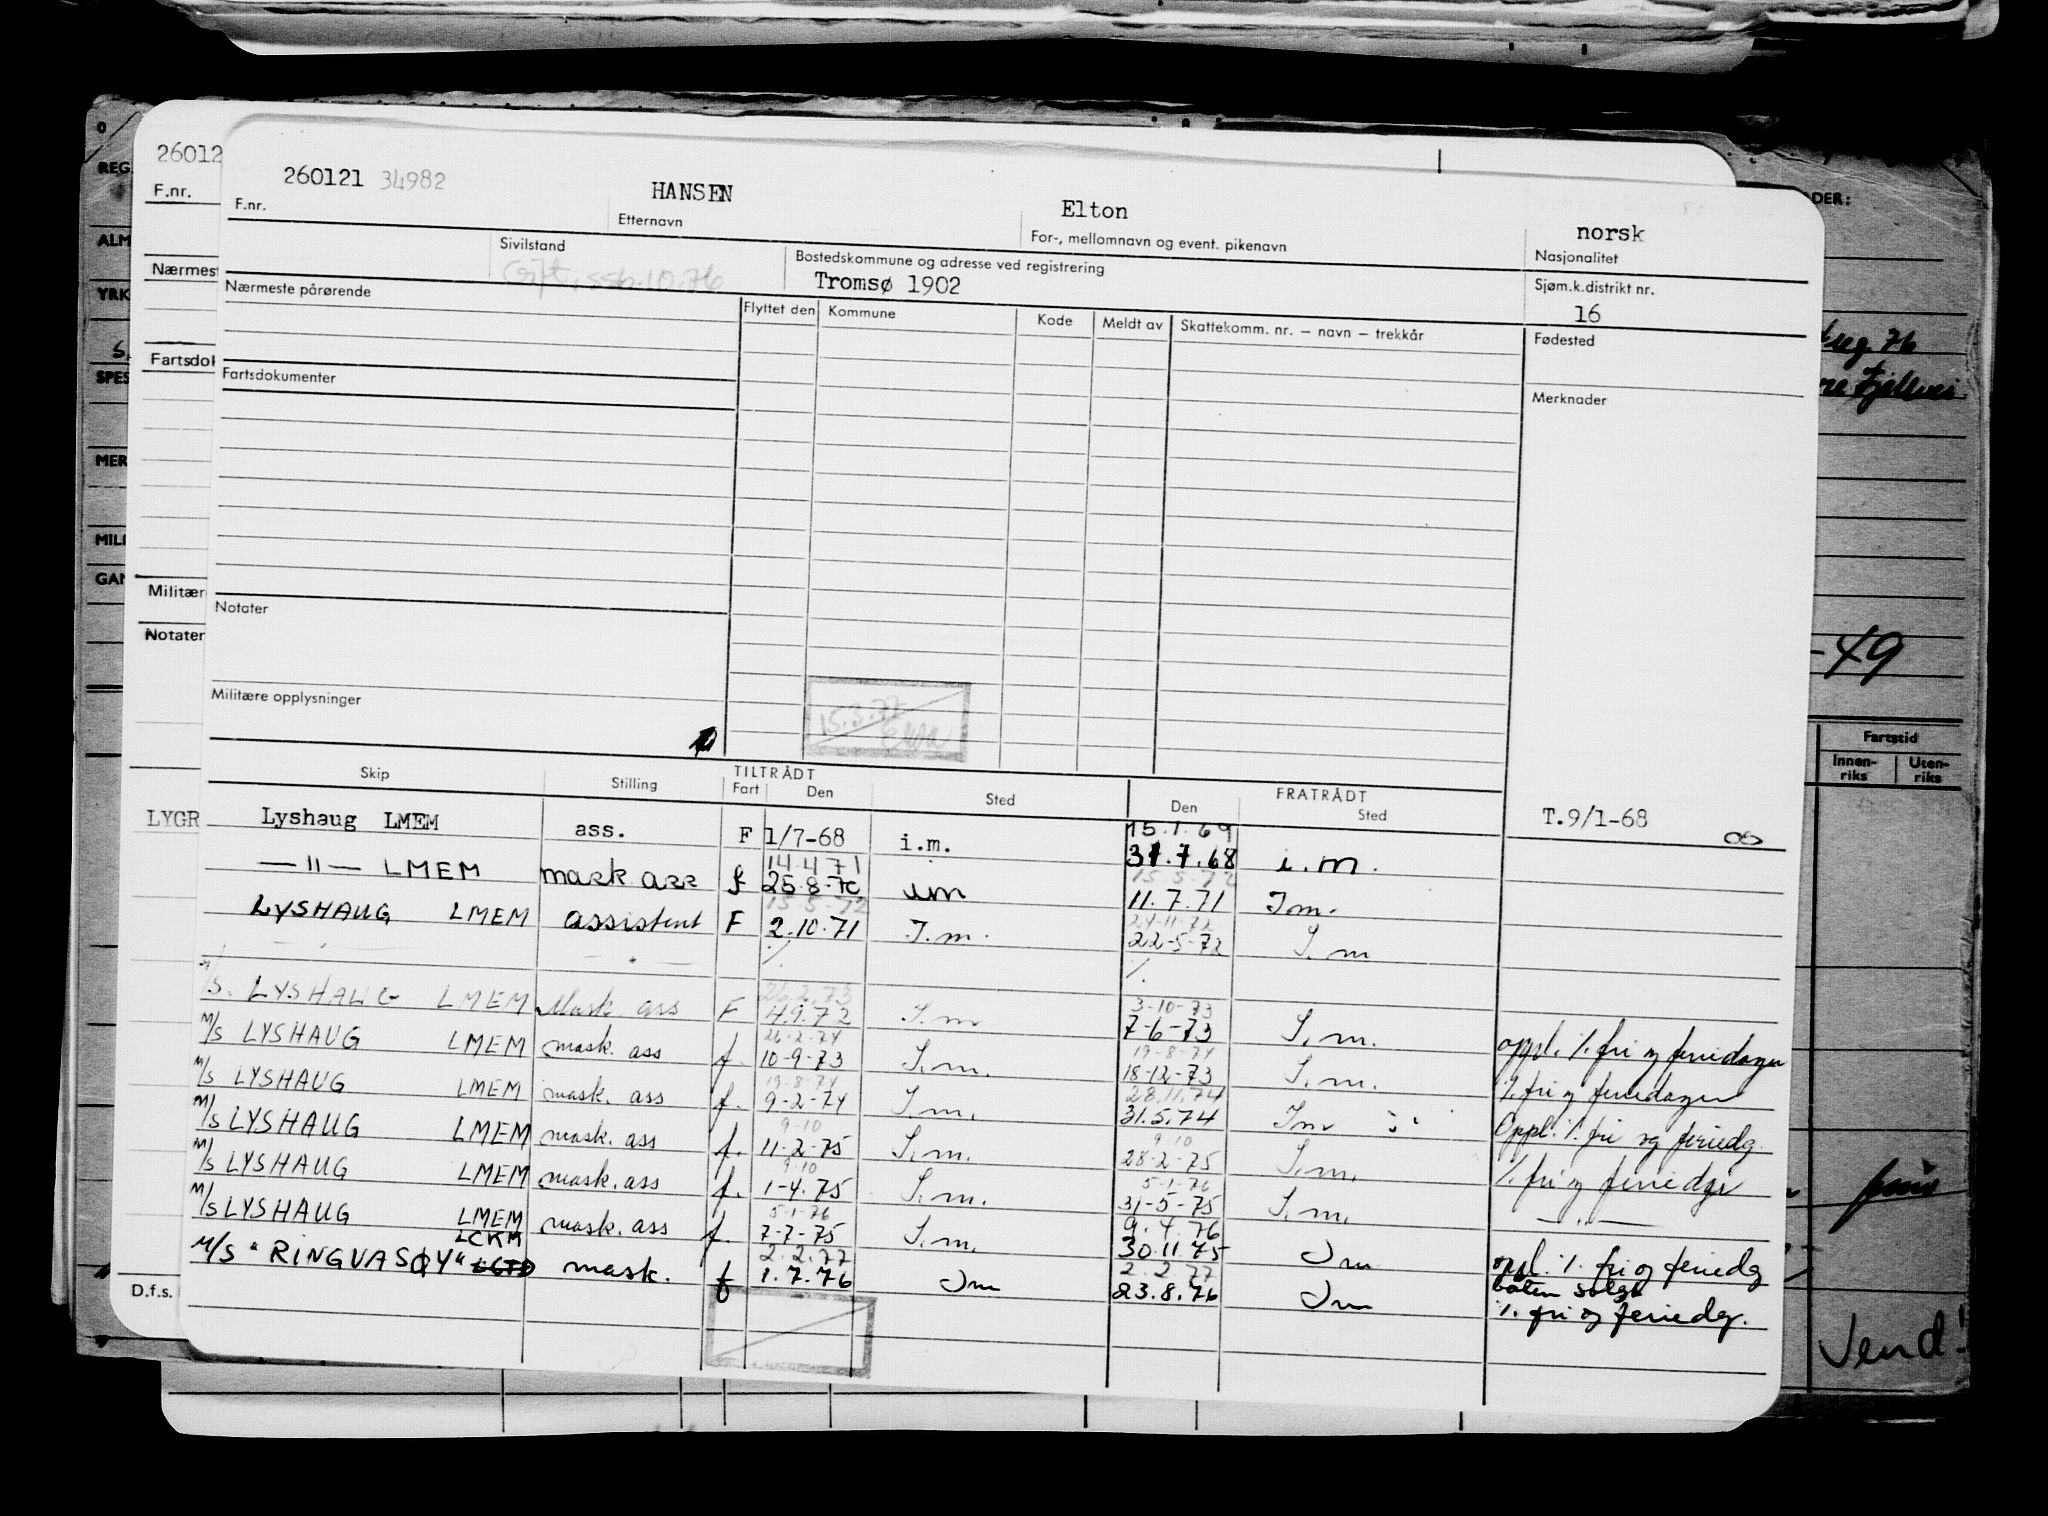 260121 34982 HANSEN Elton norsk
F.nr. Etternavn For-, mellomnavn og event. pikenavn Nasjonalitet
Sivilstand Bostedskommune og adresse ved registrering Sjøm.k.distrikt nr.
Gift, ssb. 10.76 Tromsø 1902 16
Nærmeste pårørende Flyttet den Kommune Kode Meldt av Skattekomm. nr. – navn – trekkår Fødested
Fartsdokumenter Merknader
Notater
Militære opplysninger
15.3.77
Skip Stilling TILTRÅDT Fart Den Sted FRATRÅDT Den Sted
15.1.69
Lyshaug LMEM ass. F 1/7-68 i.m. 31.7.68 i.m. T.9/1-68
14.4.71 15.5.72
— " — LMEM mask ass f 25.8-70 im 11.7.71 Im.
15.5.72 24-11-72
LYSHAUG LMEM assistent F 2.10.71 I.m. 22-5-72 I.m
26.2.73 3-10-73
M/S. LYSHAUG LMEM Mask. ass F 4.9.72 I.m 7-6-73 I.m. oppl. %. fri og feriedager
26-2-74 19-8-74
M/S LYSHAUG LMEM mask. ass f. 10-9-73 I.m. 18-12-73 I.m. %. fri og feriedager
19-8-74 28.11.74
M/S LYSHAUG LMEM mask. ass f. 9-2-74 I.m. 31.5.74 Im Oppl. %. fri og feriedg.
9-10 9-10
M/S LYSHAUG LMEM mask. ass f. 11-2-75 I.m. 28-2-75 I.m. %. fri og feriedgr
9-10 5-1-76
M/S LYSHAUG LMEM mask. ass f. 1-4.75 I.m. 31-5-75 I.m. — " —
5-1-76 9.4.76
M/S LYSHAUG LMEM mask. ass f. 7-7-75 I.m. 30.11.75 Im oppl. %. fri og feriedg
båten solgt
LCKM 2.2.77 2.2.77
M/S "RINGVASØY" mask. f 1.7.76 Im 23.8.76 Im %. fri og feriedgr.
26012
F.nr.
Nærmest
Fartsdok
Militær
Notater
LYGR
D.f.s.
0
REG.
ALM
YRK
SPES
MER
MILI
GAN
DER:
76
Fjellvei
-49
Fartstid
Innen-riks Uten-riks
Vend!